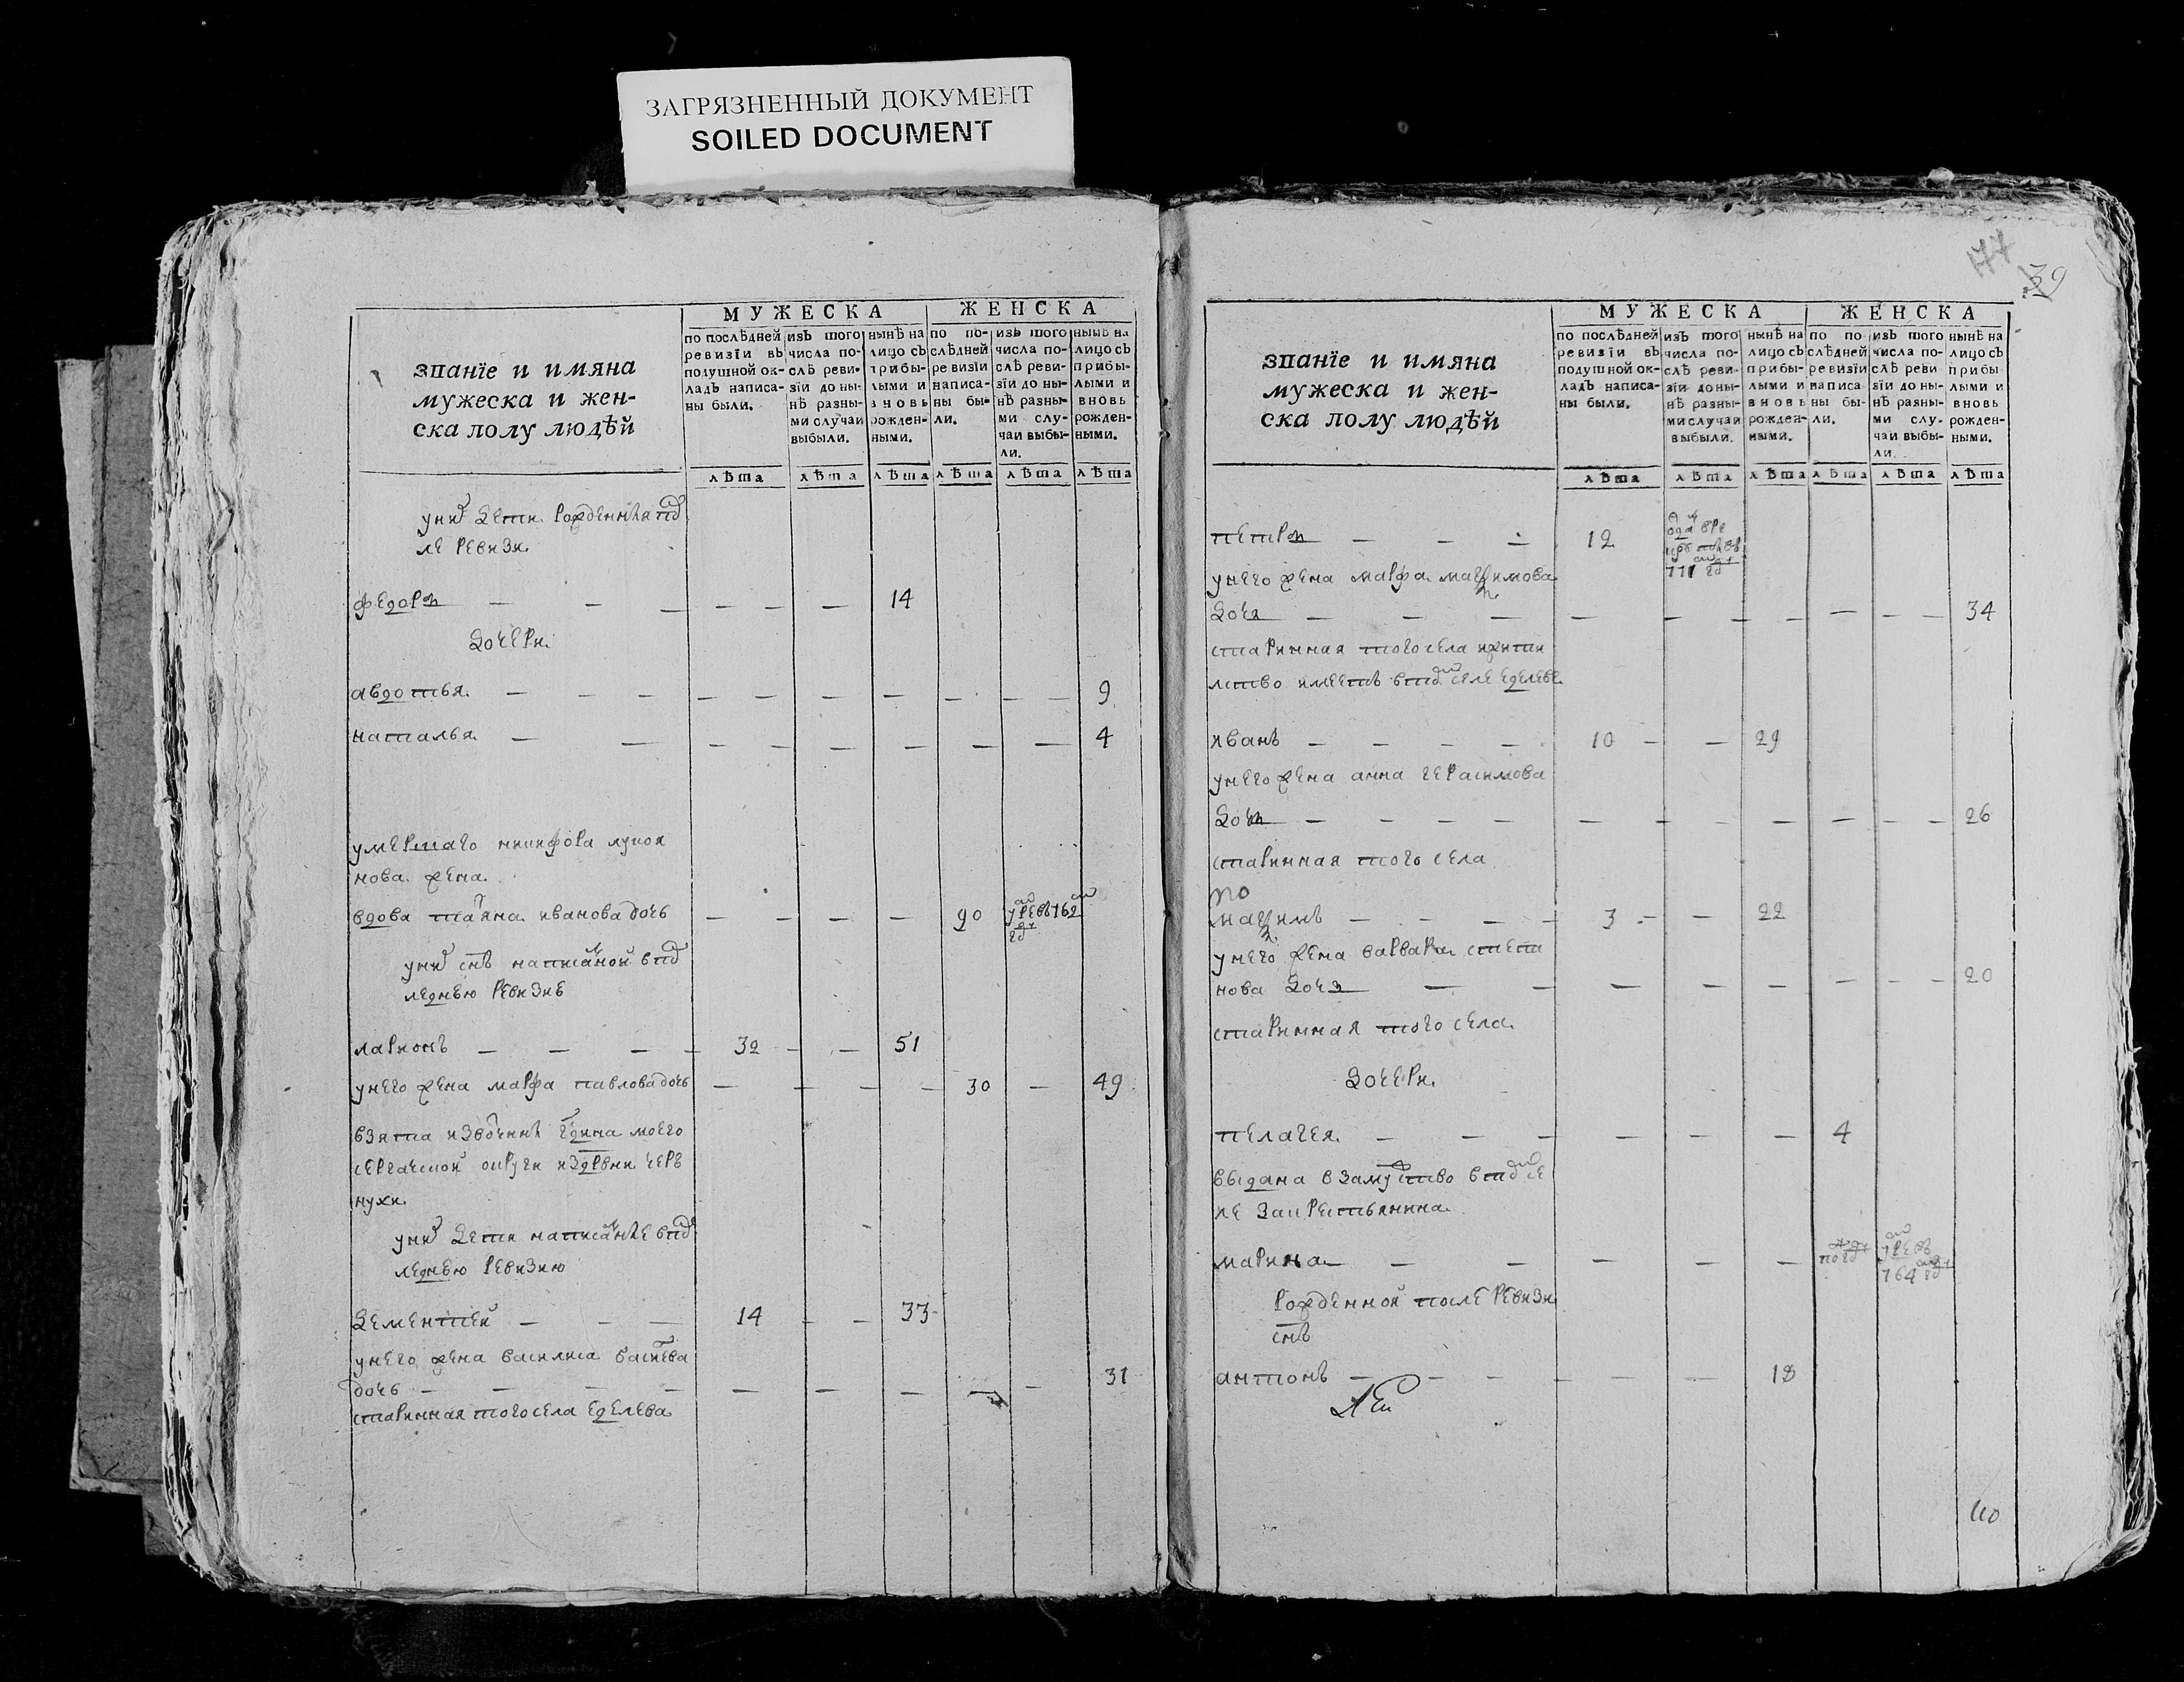 ЗАГРЯЗНЕННЫЙ ДОКУМЕНТ
SOILED DOCUMENT
званїе и имяна
мужеска и жен-
ска полу людѣй
МУЖЕСКА
ЖЕНСКА
по послѣдней ревизїи въ подушной окладъ написаны были.
изъ того числа послѣ ревизїи до нынѣ разными случаи выбыли.
нынѣ на лицо съ прибылыми и вновь рожденными.
по послѣдней ревизїи написаны были.
изъ того числа послѣ ревизїи до нынѣ разными случаи выбыли.
нынѣ на лицо съ прибылыми и вновь рожденными.
лѣта лѣта лѣта лѣта лѣта лѣта
у них дети рожденныя пос
ле ревизи
федоръ — — — — — — 14
дочери
авдотья — — — — — — — — — — 9
наталья — — — — — — — — — 4
умершаго никифора лукоя
нова жена
вдова татьяна иванова дочь — — — — 90 762
у них снъ написанной в пос
леднею ревизие
ларионъ — — — — 32 — — 51
у него жена марфа павлова дочь — — — — 30 — 49
взята извочины гдина моего
сергачской округи из дрвни черв
нухи
у них дети написанные в пос
леднею ревизию
дементей — — — 14 — — 33
у него жена василиса
дочь — — — — — — — — — 31
старинная того села еделева
177
39
званїе и имяна
мужеска и жен-
ска полу людѣй
МУЖЕСКА
ЖЕНСКА
по послѣдней ревизїи въ подушной окладъ написаны были.
изъ того числа послѣ ревизїи до нынѣ разными случаи выбыли.
нынѣ на лицо съ прибылыми и вновь рожденными.
по послѣдней ревизїи написаны были.
изъ того числа послѣ ревизїи до нынѣ разными случаи выбыли.
нынѣ на лицо съ прибылыми и вновь рожденными.
лѣта лѣта лѣта лѣта лѣта лѣта
петръ — — — 12
у него жена марфа максимова
дочь — — — — — — — — — — 34
старинная того села и жити
лство имеетъ в том селе еделеве
иванъ — — — — 10 — — 29
у него жена анна герасимова
дочь — — — — — — — — — — — 26
старинная того села
максимъ — — — — 3 — — 22
у него жена варвара степа
нова дочь — — — — — — — — 20
старинная того села
дочери
пелагея — — — — — — 4
выдана в замужство в том се
ле за крестьянина
марина — — — — — 764
рожденной после ревизи
снъ
антонъ — — — — — — 18